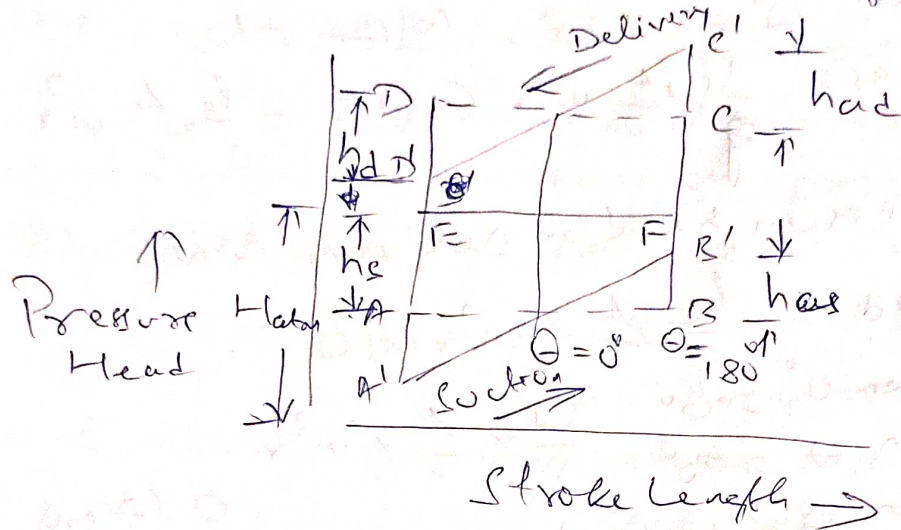 Delivery
C'
had
D
C
hd
D'
E
F
B'
hs
has
Pressure
Head
Hatm
A
B
θ = 0°
θ = 180°
A'
Suction
Stroke Length →